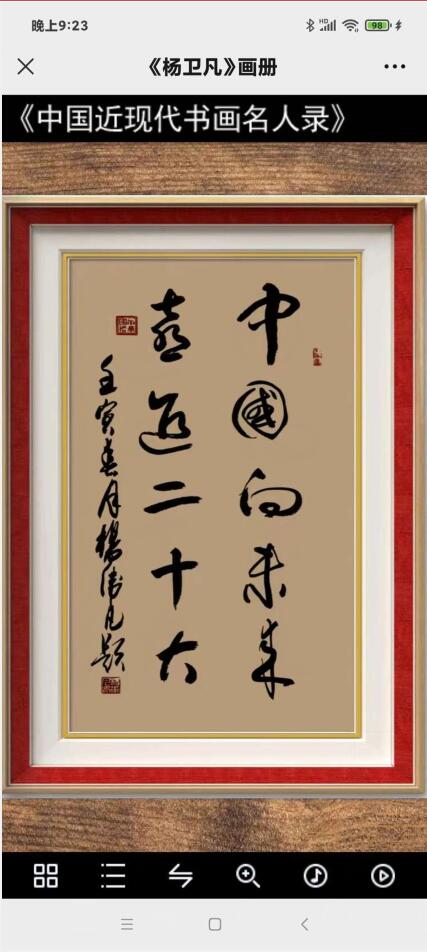 晚上9:23
HD
98
《杨卫凡》画册
《中国近现代书画名人录》
中國向未来
喜迎二十大
壬寅春月楊衛凡題